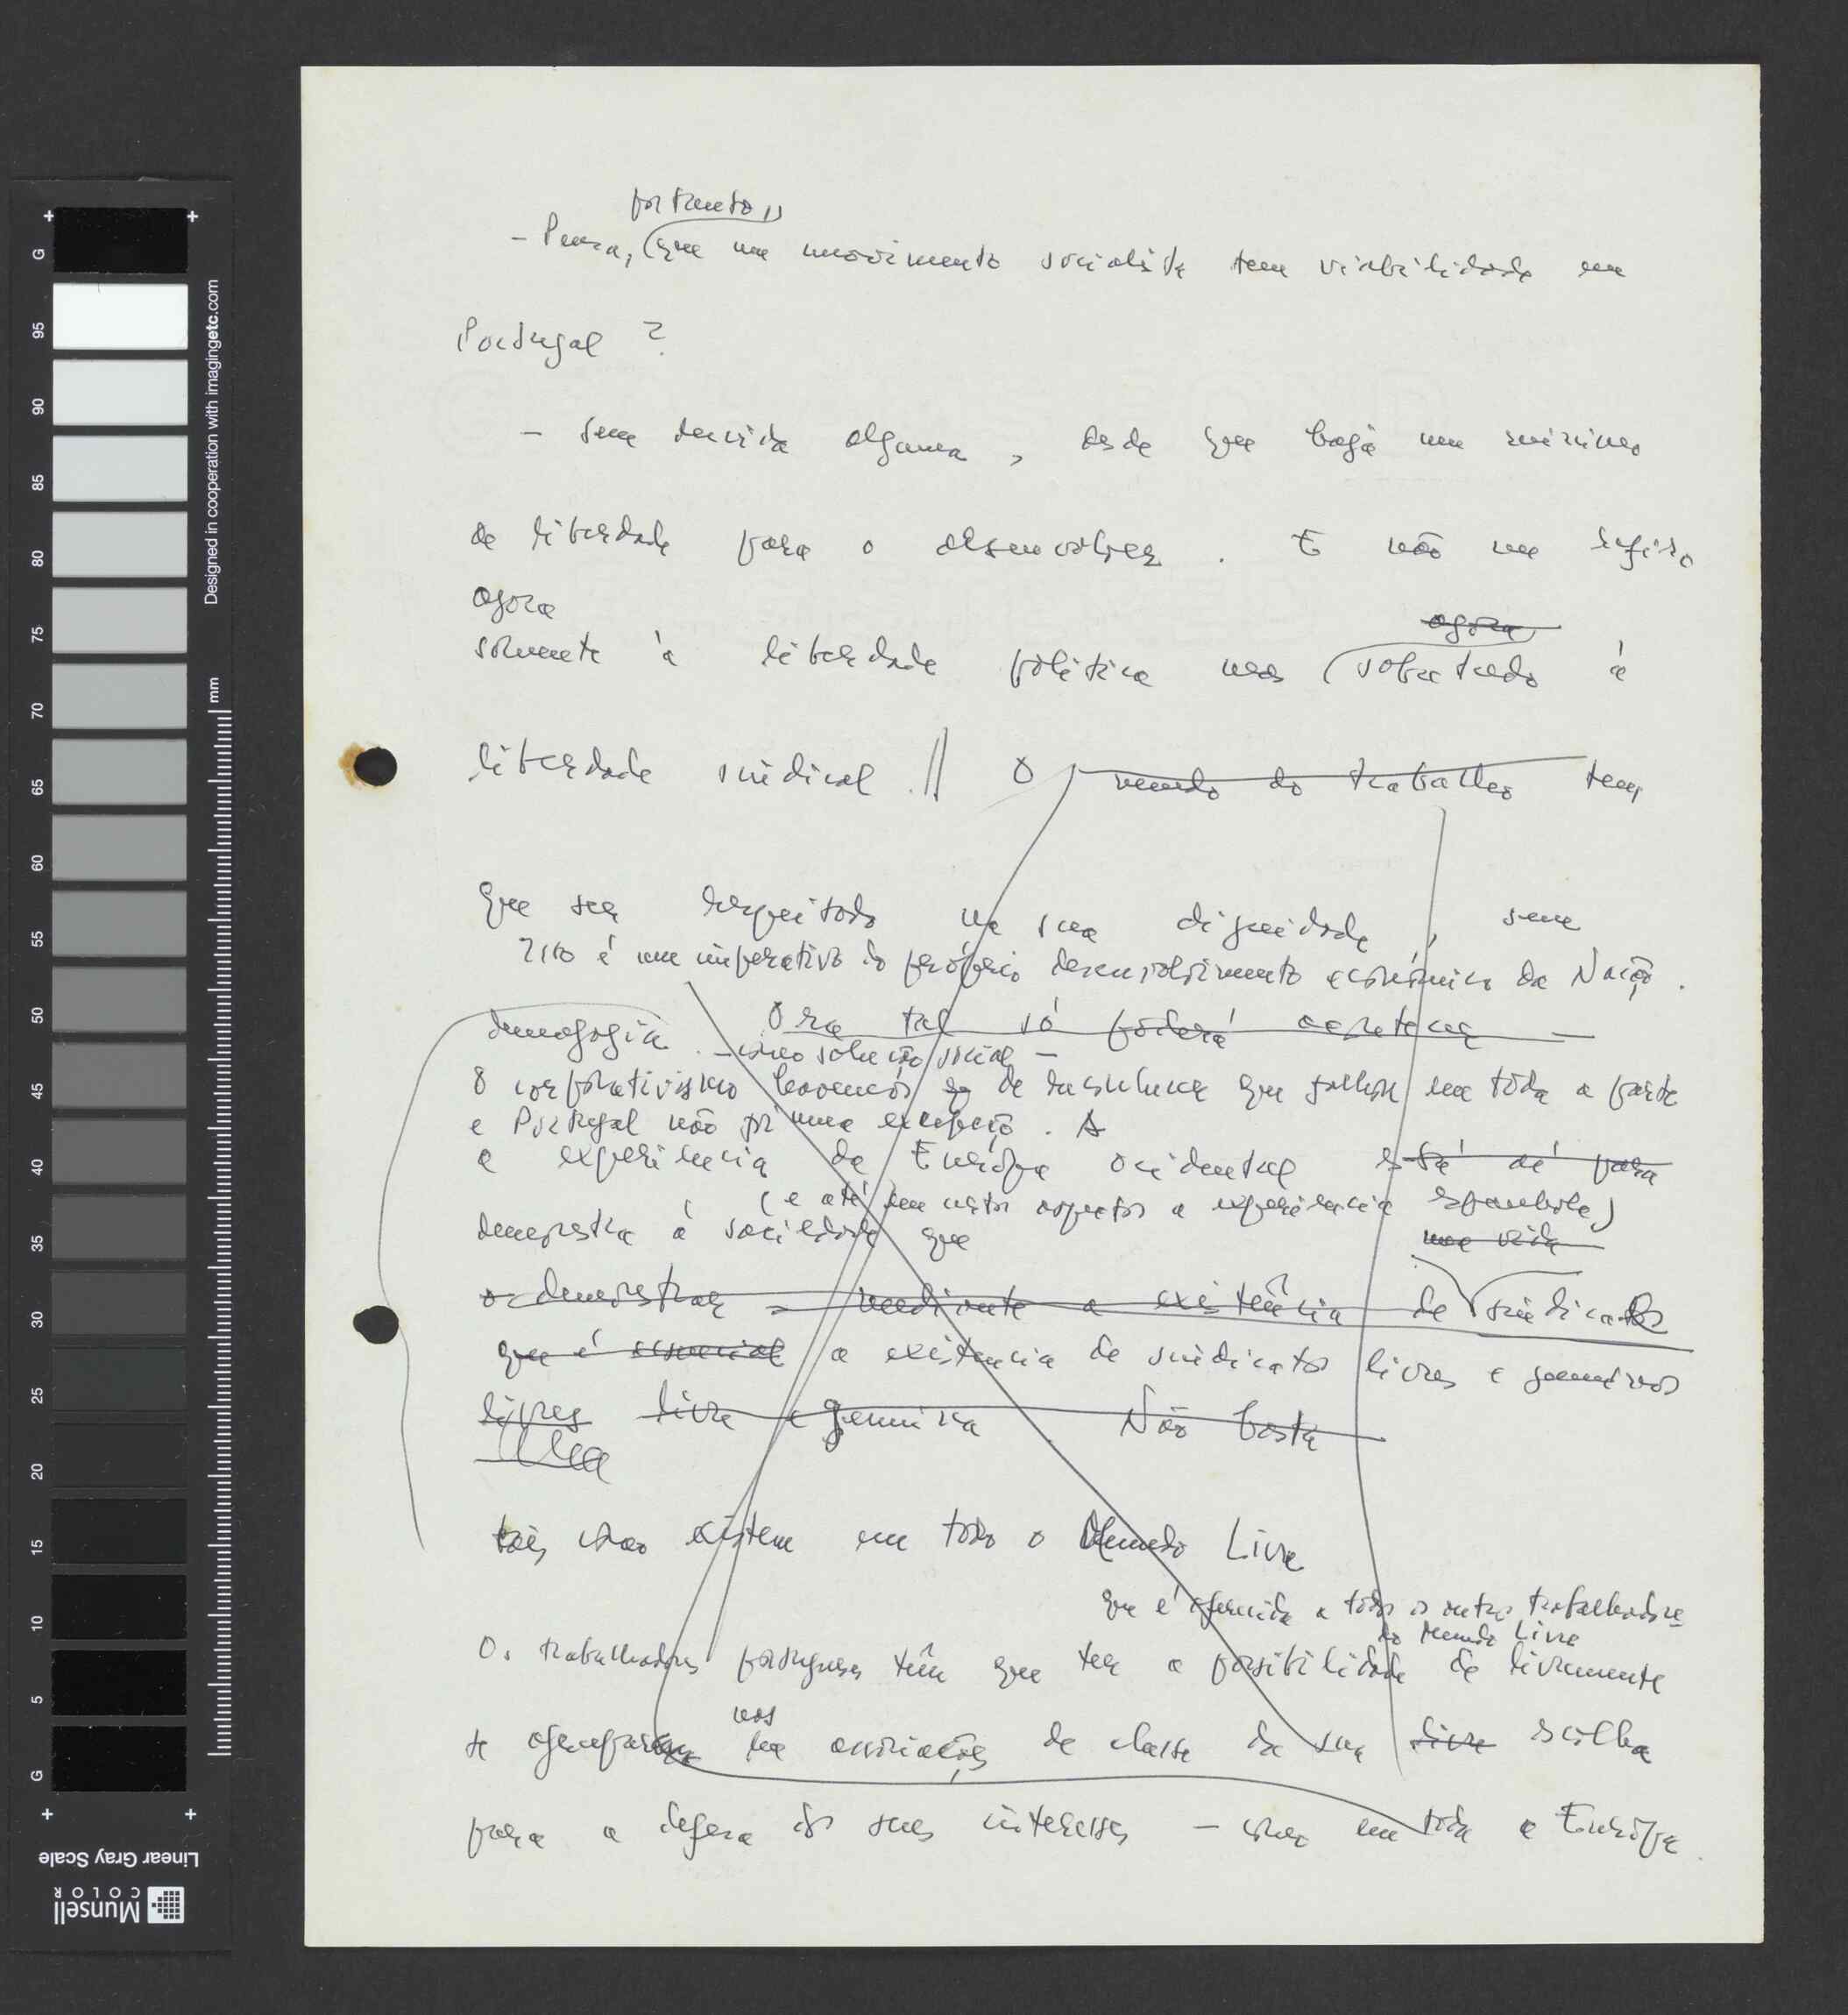 portanto,
- Pensa, que um movimento socialista tem viabilidade em
Portugal ?
- Sem dúvida alguma, desde que haja um mínimo
de liberdade para o desenvolver. E não me refiro
agora
agora
somente à liberdade política mas sobretudo à
liberdade sindical. // O mundo do trabalho tem
que ser respeitado na sua dignidade, sem
Isto é um imperativo do próprio desenvolvimento económico da Nação.
demagogia. Ora tal só poderá acontecer
- como solução social -
O corporativismo havemos de reconhecer que falhou em toda a parte
e Portugal não foi uma excepção. A
a experiência da Europa ocidental está aí para
(e até em certos aspectos a experiência espanhola)
demonstra à saciedade que
uma vida
o demonstrar - mediante a existência de sindicatos
que é essencial a existência de sindicatos livres e genuínos
livres livre e genuína Não basta
tais como existem em todo o Mundo Livre
que é oferecida a todos os outros trabalhadores
do Mundo Livre
Os trabalhadores portugueses têm que ter a possibilidade de livremente
nos
se agruparem em associações de classe da sua livre escolha
para a defesa dos seus interesses - como em toda a Europa.
G 95 90 85 80 75 70 65 60 55 50 45 40 35 30 25 20 15 10 5 G
Designed in cooperation with imagingetc.com
mm
Linear Gray Scale
Munsell
COLOR